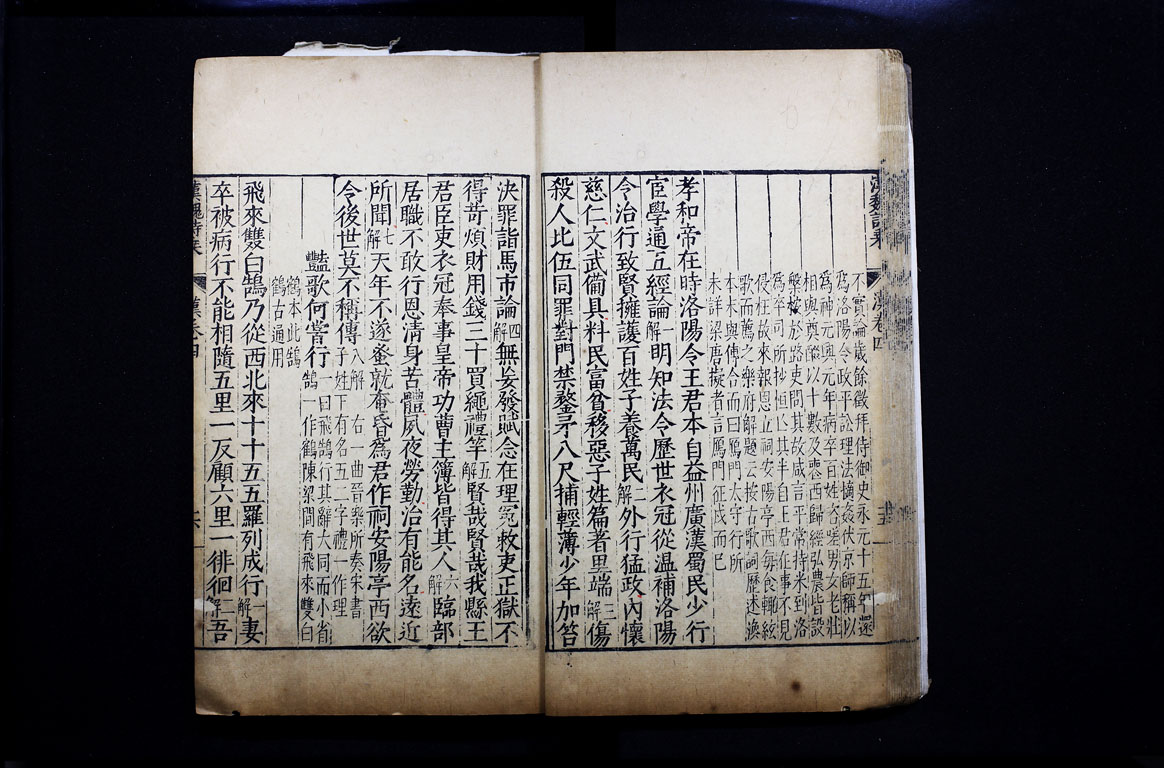 漢魏詩乘
漢卷四
不實論歲餘徵拜侍御史永元十五年還
爲洛陽令政平訟理法摘姦伏京師稱以
爲神元興元年病卒百姓咨嗟男女老壯
相與奠醊以千數及喪西歸經弘農皆設
槃桉於路吏問其故咸言平常持米到洛
爲卒司所抄恒亡其半自王君在事不見
侵枉故來報恩立祠安陽亭西每食輒絃
歌而薦之樂府解題云按古歌詞歷述渙
本末與傳合而曰鴈門太守行所
未詳梁唐擬者言鴈門征戍而已
孝和帝在時洛陽令王君本自益州廣漢蜀民少行
宦學通五經論一解明知法令歷世衣冠從温補洛陽
令治行致賢擁護百姓子養萬民二解外行猛政內懷
慈仁文武備具料民富貧移惡子姓篇著里端三解傷
殺人比伍同罪對門禁鍪矛八尺捕輕薄少年加笞
決罪詣馬市論四解無妄發賦念在理冤敕吏正獄不
得苛煩財用錢三十買繩禮竿五解賢哉賢哉我縣王
君臣吏衣冠奉事皇帝功曹主簿皆得其人六解臨部
居職不敢行恩清身苦體夙夜勞勤治有能名遠近
所聞七解天年不遂蚤就奄昏爲君作祠安陽亭西欲
令後世莫不稱傳八解 右一曲晉樂所奏宋書子姓下有名五二字禮一作理
豔歌何嘗行一曰飛鵠行其辭大同而小省鵠一作鶴陳梁間有飛來雙白
鶴本此鵠
鶴古通用
飛來雙白鵠乃從西北來十十五五羅列成行一解妻
卒被病行不能相隨五里一反顧六里一徘徊二解吾
漢魏詩乘
漢卷四